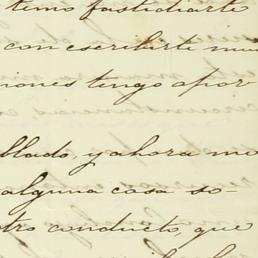 temo fastidiarte
con escribirte mu
iones tengo a por
llado, y ahora me
alguna cosa so-
tro conducto, que